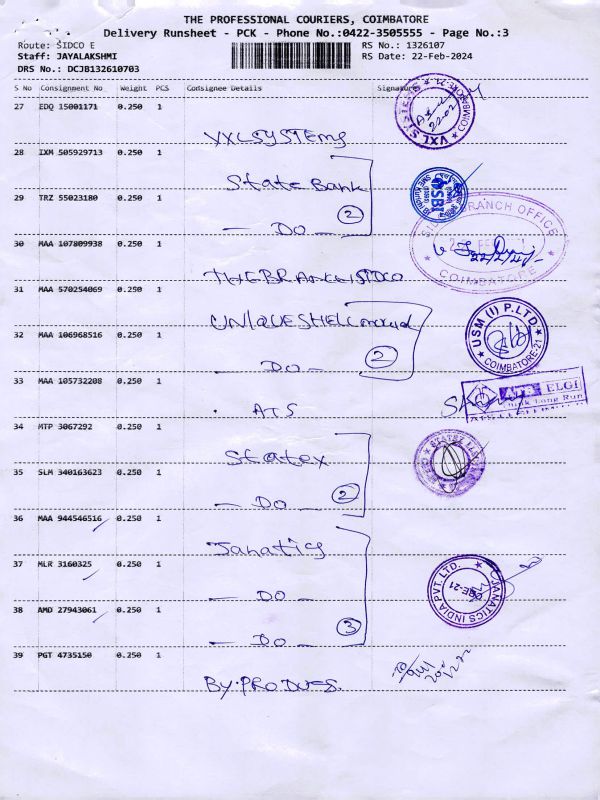 THE PROFESSIONAL COURIERS, COIMBATORE
Delivery Runsheet - PCK - Phone No.:0422-3505555 - Page No.:3
Route: SIDCO E RS No.: 1326107
Staff: JAYALAKSHMI RS Date: 22-Feb-2024
DRS No.: DCJB132610703
S No Consignment No Weight PCS Consignee Details Signature
27 EDQ 15001171 0.250 1
VXL SYSTEMS
VXL SYSTEMS COIMBATORE-21
28 IXM 505929713 0.250 1
State Bank
SBI
29 TRZ 55023180 0.250 1
- DO - 2
BRANCH OFFICE
COIMBATORE
30 MAA 107809938 0.250 1
THE BRANCH SIDCO
31 MAA 570254069 0.250 1
UNIQUE SHELL mould
USM (I) P.LTD. COIMBATORE-21
32 MAA 106968516 0.250 1
- DO - 2
33 MAA 105732208 0.250 1
ATS
ATS ELGI
34 MTP 3067292 0.250 1
Statex
35 SLM 340163623 0.250 1
- DO - 2
36 MAA 944546516 0.250 1
Janatics
37 MLR 3160325 0.250 1
- DO -
JANATICS INDIA PVT. LTD. CBE-21
38 AMD 27943061 0.250 1
- DO - 3
39 PGT 4735150 0.250 1